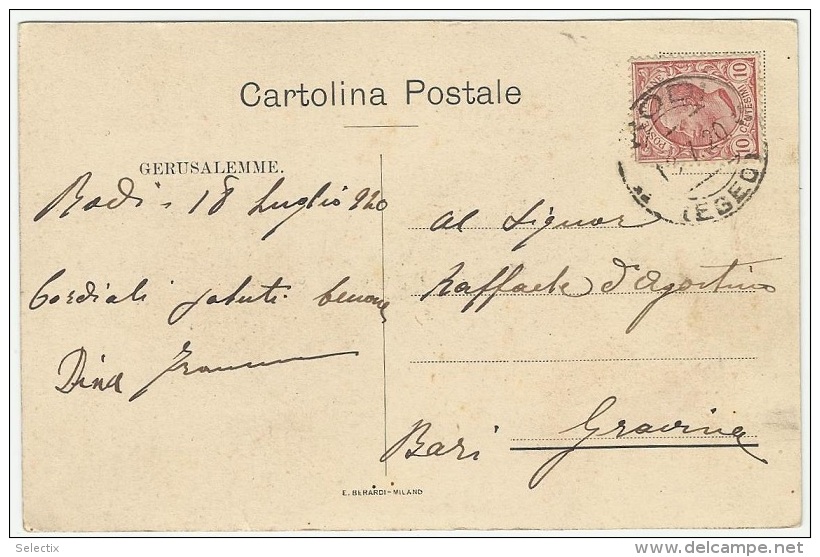 Cartolina Postale
GERUSALEMME.
Rodi - 18 Luglio 920
Cordiali saluti
Dina
al Signor
Raffaele d'Agostino
Gravina
Bari
POSTE
CENTESIMI
10 10
RODI
(EGEO)
E. BERARDI - MILANO
Selectix
www.delcampe.net